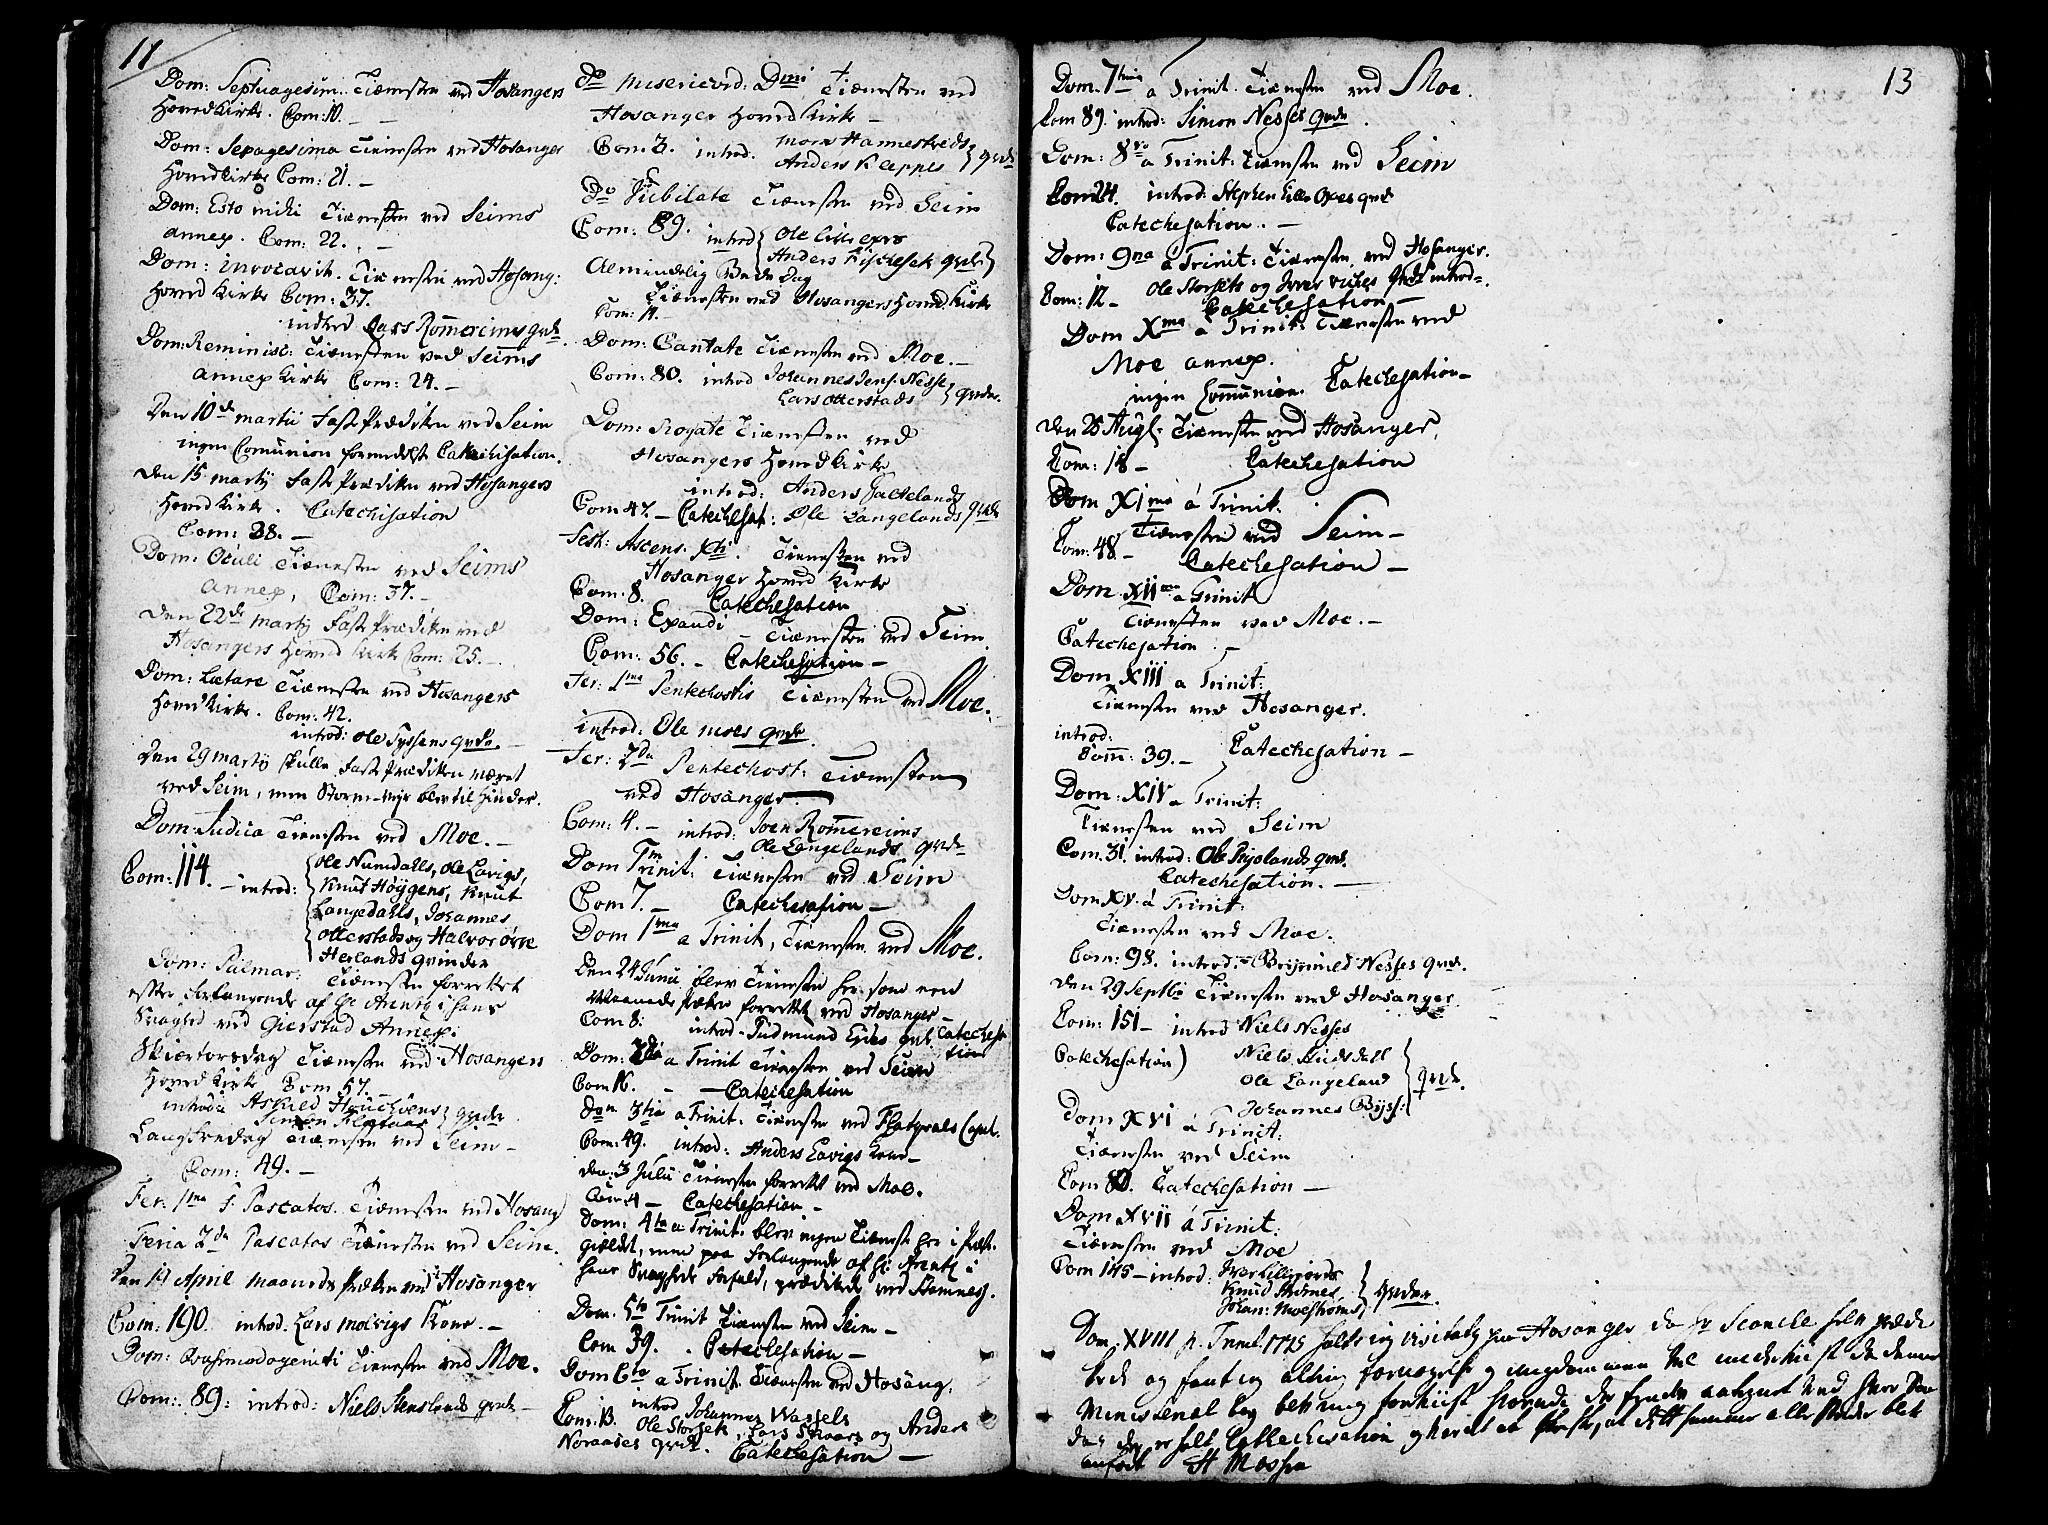 11
Dom: Septuagesim: Tienesten ved Hosangers
Hoved Kirke. Com: 10. — —
Dom: Sexagesima Tienesten ved Hosanger
Hoved Kirke Com: 21. —
Dom: Esto mihi Tienesten ved Seims
annex. Com: 22. —
Dom: invocavit. Tienesten ved Hosang:
Hoved Kirke Com: 37.
introd Lars Romereims qvde.
Dom: Reminisc: Tienesten ved Seims
annex Kirke Com: 24. —
Den 10de martii Faste Prædiken ved Seim
ingen Comunion formedelst Catechisation.
Den 15 martij Faste Prædiken ved Hosangers
Hoved Kirke. Catechisation
Com: 38. —
Dom: Oculi Tienesten ved Seims
annex, Com: 37. —
Den 22de martij Faste Prædiken ved
Hosangers Hoved Kirke Com: 25. —
Dom: Lætare Tienesten ved Hosangers
Hoved Kirke. Com: 42.
introd: Ole Tyssens qvde. —
Den 29 martij skulle Faste Prædiken været
ved Seim, men Storm-veyr blev til Hinder.
Dom: Judica Tienesten ved Moe. —
Com: 114. — introd: Ole Numdalls, Ole Lavigs,
Knut Höygens, Knut
Langedalls, Johannes
Otterstads og Halvor övre
Herlands qvinder
Dom: Palmar: Tienesten forrettet
efter forlangende af Hr Arentz i hans
Svaghed ved Gierstad Annex:
Skiertorsdag Tienesten ved Hosangers
Hoved Kirke Com 57. —
introd: Askild
Simon qvder.
Langfredag Tienesten ved Seim —
Com: 49. —
Fer: 1ma F. Pascatos. Tienesten ved Hosang
Feria 2da Pascatos Tienesten ved Seim.
Den 19 April maaneds Præken ved Hosanger
Com: 190. introd. Lars Molvigs Kone. —
Dom: Qvasimodogeniti Tienesten ved Moe.
Com: 89: introd: Niels Stenslands qvde —
Do Misericord: Dmi Tienesten ved
Hosanger Hoved Kirke —
Com: 3. introd. Mons Hannestveds
Anders Kleppes qvdr
Do Jubilate Tienesten ved Seim
Com: 89. introd Ole Lille Oxes
Anders qvder
Almindelig Bede Dag
Tienesten ved Hosangers Hoved Kirke
Com: 11.
Dom: Cantate Tienesten ved Moe. —
Com: 80. introd Johannes Jens: Nesse
Lars Otterstads qvder.
Dom: Rogate Tienesten ved
Hosangers Hoved Kirke
introd: Anders Fættelands
Com: 47. — Catechesat: Ole Langelands qvder
Fest: Ascens: Xti. Tienesten ved
Hosanger Hoved Kirke
Com: 8. Catechesation
Dom: Exaudi — Tienesten ved Seim.
Com: 56. — Catechesation —
Fer: 1ma Pentechostis Tienesten ved Moe.
introd: Ole Moes qvde.
Fer: 2da Pentechost: Tienesten
ved Hosanger —
Com: 4. — introd: Joen Romereims
Ole Langelands. qvde
Dom Tm Trinit: Tienesten ved Seim
Com 7. — Catechesation —
Dom 1ma a Trinit, Tienesten ved Moe.
Den 24 Junii blev Tienesten her som ved
Maaneds Præken forrettet ved Hosanger —
Com 8: introd. Gudmund Eides qvd. Catechesation
Dom: 2da a Trinit Tienesten ved Seim
Com 16. — — Catechesation
Dom 3tia a Trinit. Tienesten ved Flatqvals Capel.
Com: 49. introd: Anders Lavigs Kone —
den: 3 Julii Tienesten forrettet ved Moe.
Com: 4 — Catechesation. —
Dom: 4ta a Trinit. blev ingen Tieneste her i Præste
gieldet, men paa forlangende af Hr Arentz i
hans Svagheds Forfald, prædikede ved Hamnes.
Dom. 5ta Trinit Tienesten ved Seim —
Com 39. . Catechesation —
Dom 6ta a Trinit Tienesten ved Hosang.
Com: 13. introd Johannes Wassels
Ole Storsets, Lars og Anders
Noraases qvdr. Catechesation —
13
Dom. 7tima a Trinit. Tienesten ved Moe.
Com 89. introd: Simon Nesses qvde.
Dom: 8va a Trinit: Tienesten ved Seim
Com 24. introd: Stephen Lille Oxes qvde
Catechesation. —
Dom: 9na a Trinit: Tienesten ved Hosanger.
Com: 12 — Ole Storsets og Iver qvdr introd.
Catechesation —
Dom Xma a Trinit: Tienesten ved
Moe annex.
ingen Communion. Catechesation —
den 28 Augl. Tienesten ved Hosanger,
Com: 18 — Catechesation
Dom XIma á Trinit.
Tienesten ved Seim —
Com: 48 — Catechesation —
Dom. XIIma a Trinit
Tienesten ved Moe. —
Catechesation. —
Dom XIII a Trinit:
Tienesten ved Hosanger.
introd:
Comm: 39. — Catechesation —
Dom: XIV a Trinit:
Tienesten ved Seim
Com. 31. introd: Ole qvde.
Catechesation. —
Dom XV. á Trinit:
Tienesten ved Moe.
Com: 98. introd: Brynnild Nesses qvde.
den 29 Septbr Tienesten ved Hosanger
Com: 151 — introd Niels Nesses
Catechesation) Niels
Ole Langeland
Johannes qvde.
Dom XVI á Trinit:
Tienesten ved Seim
Com 80. Catechesation —
Dom XVII á Trinit:
Tienesten ved Moe
Com 145 — introd: Iver Lillejords
Knud
Johan: qvder.
Dom XVIII p. Trinit. 1729 holdt ieg visitatz paa Hosanger da Hr selv præde
kede og fant ieg alting og ungdommen vel underviist
Catechesation
anført H